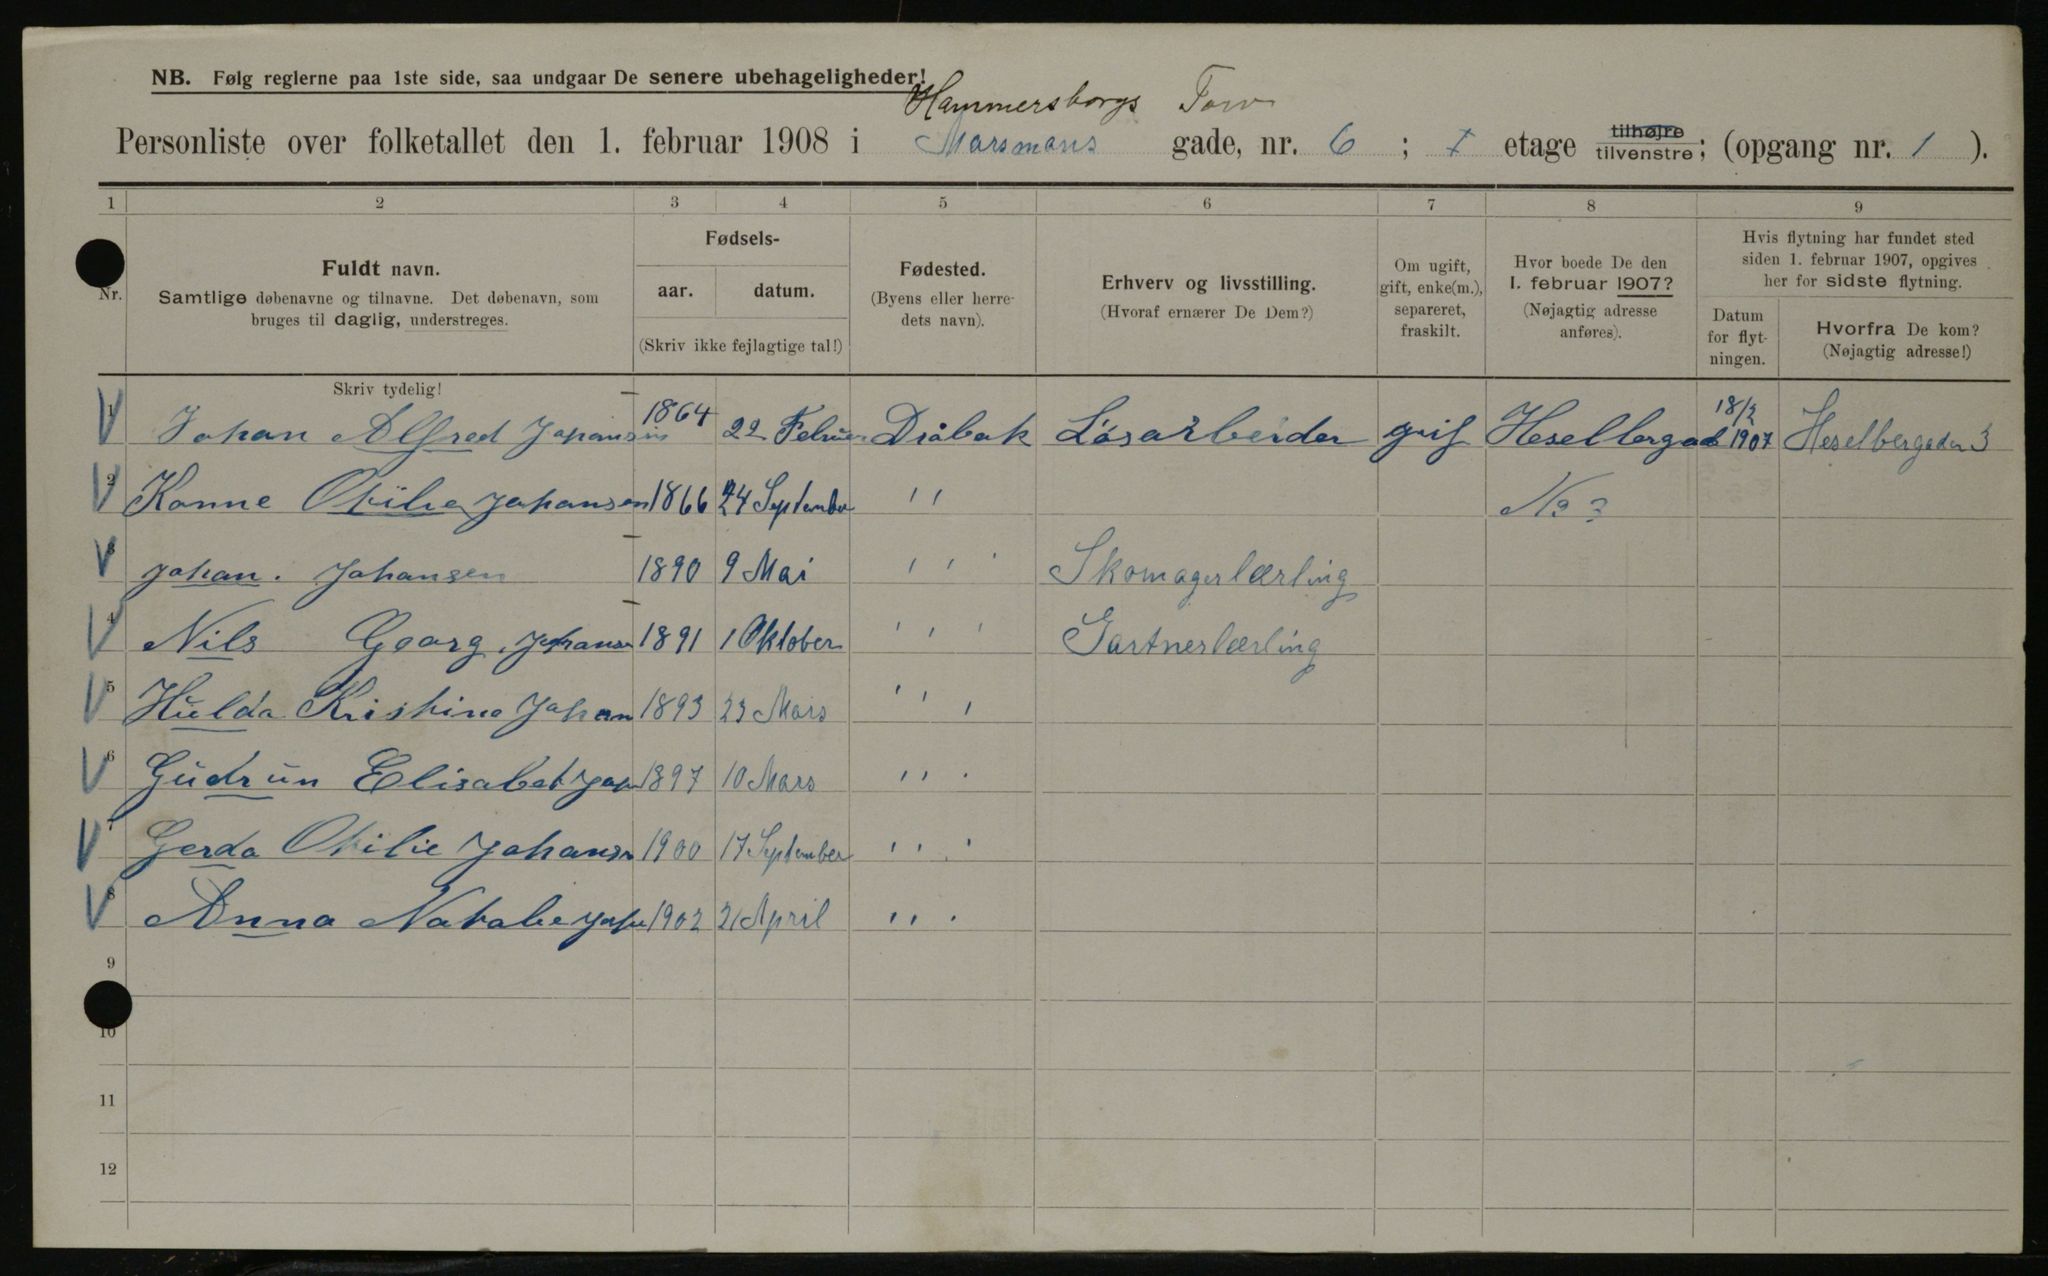 NB. Følg reglerne paa 1ste side, saa undgaar De senere ubehageligheder!
Hammersborgs Torv
Personliste over folketallet den 1. februar 1908 i Marsmans gade, nr. 6 ; I etage tilhøjre tilvenstre; (opgang nr. 1 ).
1 2 3 4 5 6 7 8 9
Nr.
Fuldt navn.
Samtlige døbenavne og tilnavne. Det døbenavn, som
bruges til daglig, understreges.
Skriv tydelig!
Fødsels-
aar. datum.
(Skriv ikke fejlagtige tal!)
Fødested.
(Byens eller herre-
dets navn).
Erhverv og livsstilling.
(Hvoraf ernærer De Dem?)
Om ugift,
gift, enke(m.),
separeret,
fraskilt.
Hvor boede De den
1. februar 1907?
(Nøjagtig adresse
anføres).
Hvis flytning har fundet sted
siden 1. februar 1907, opgives
her for sidste flytning.
Datum
for flyt-
ningen.
Hvorfra De kom?
(Nøjagtig adresse!)
1 Johan Alfred Johansen 1864 22 Februer Dråbak Lösarbeider gif Hesselbergad 1907 Heselbergaden 3
2 Johansen 1866 24 September " No 3
3 Johan. Johansen 1890 9 Mai " Skomagerlærling
4 Nils Georg Johanse 1891 1 Oktober " Gartnerlærling
5 Hulda Kristine Johan 1893 23 Mars "
6 Gudrun Elisabet Joh 1897 10 Mars "
7 Gerda Otilie Johansn 1900 17 September "
8 Anna Natalie Joha 1902 21 April "
9
10
11
12